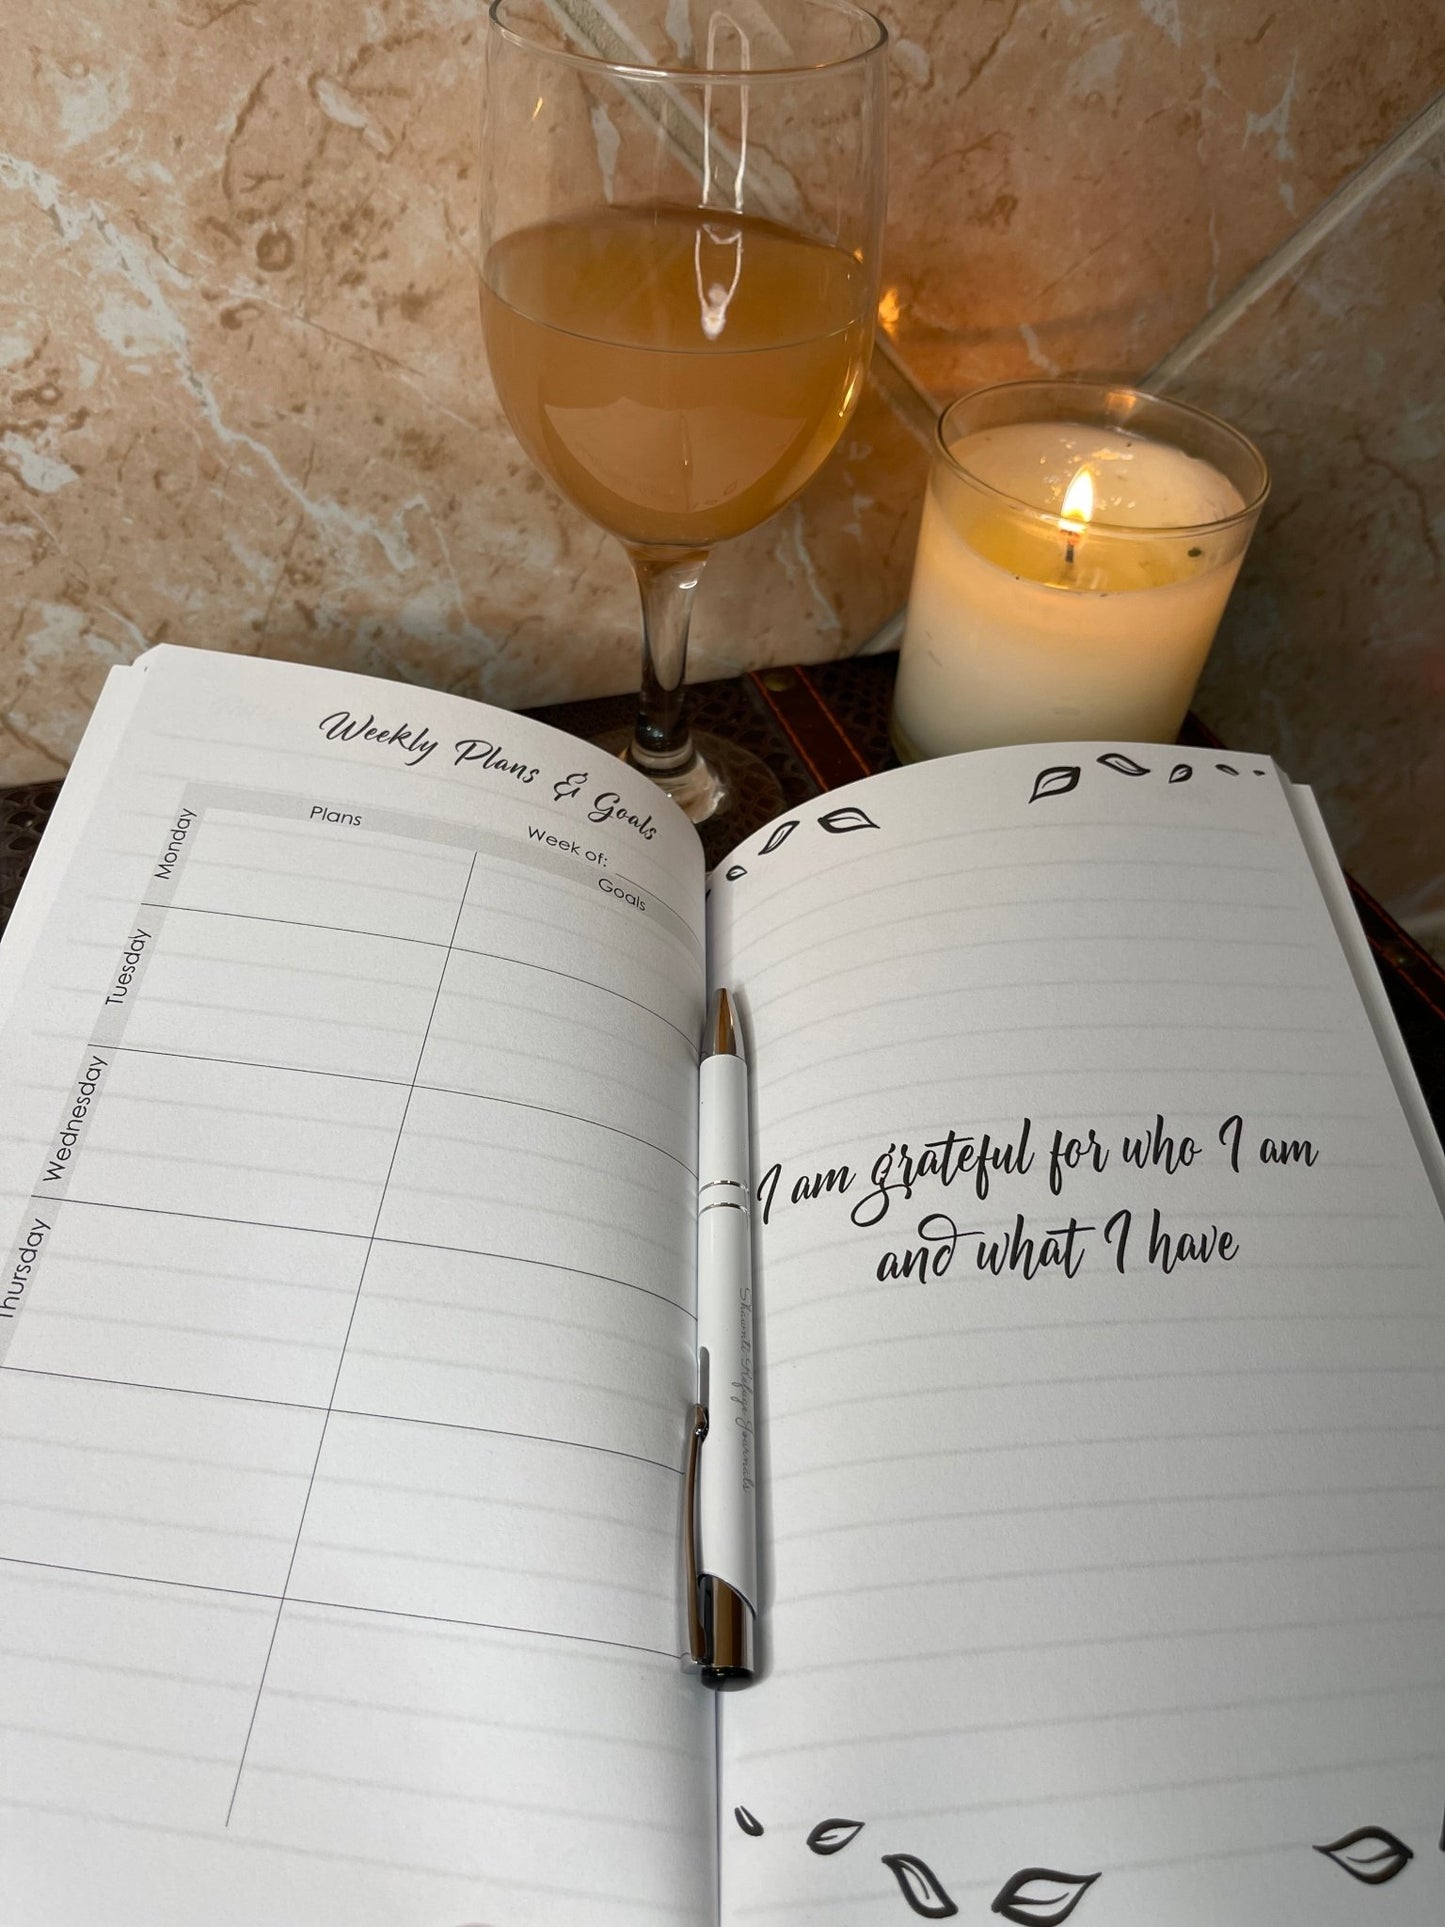 Weekly Plans & Goals
Week of:
Plans
Goals
Monday
Tuesday
Wednesday
Thursday
I am grateful for who I am
and what I have
Journals